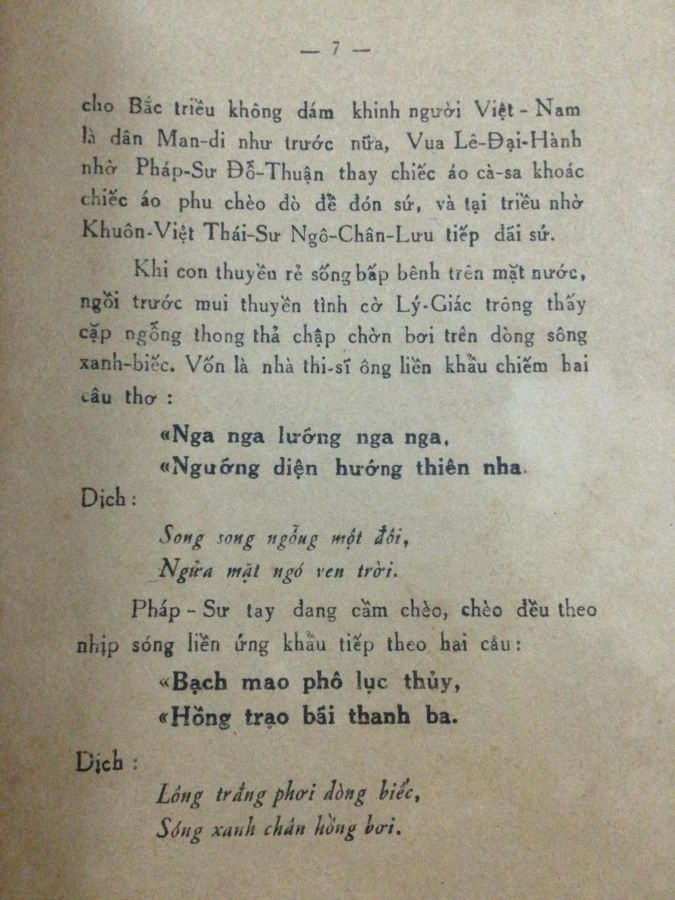 — 7 —
cho Bắc triều không dám khinh người Việt - Nam
là dân Man-di như trước nữa, Vua Lê-Đại-Hành
nhờ Pháp-Sư Đỗ-Thuận thay chiếc áo cà-sa khoác
chiếc áo phu chèo đò để đón sứ, và tại triều nhờ
Khuôn-Việt Thái-Sư Ngô-Chân-Lưu tiếp đãi sứ.
Khi con thuyền rẻ sống bấp bênh trên mặt nước,
ngồi trước mui thuyền tình cờ Lý-Giác trông thấy
cặp ngỗng thong thả chập chờn bơi trên dòng sông
xanh-biếc. Vốn là nhà thi-sĩ ông liền khẩu chiếm hai
câu thơ :
«Nga nga lướng nga nga,
«Ngưỡng diện hướng thiên nha.
Dịch :
Song song ngỗug một đôi,
Ngửa mặt ngó ven trời.
Pháp - Sư tay đang cầm chèo, chèo đều theo
nhịp sóng liền ứng khẩu tiếp theo hai câu :
«Bạch mao phô lục thủy,
«Hồng trạo bãi thanh ba.
Dịch :
Lông trắng phơi dòng biếc,
Sóng xanh chân hồng bơi.